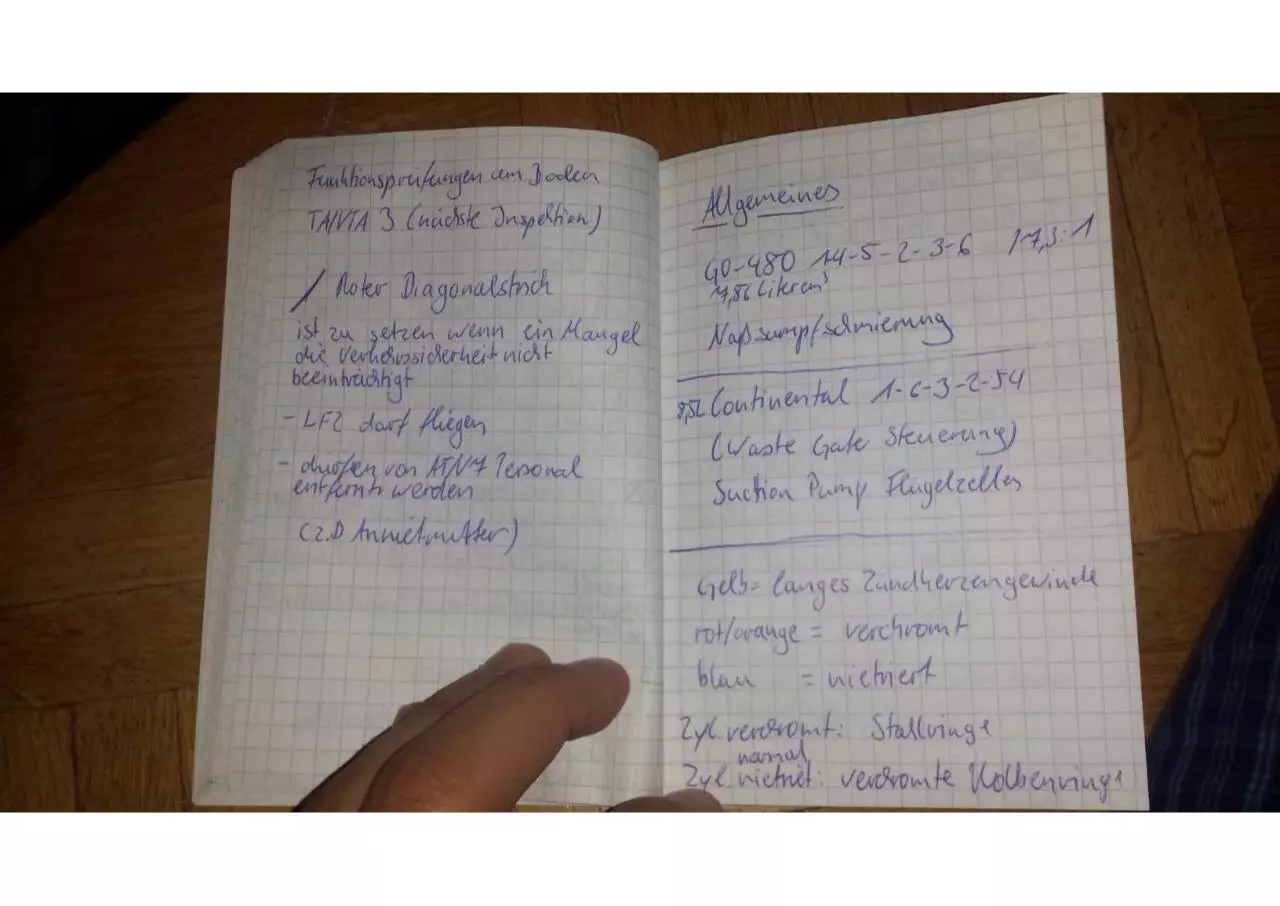 Funktionsprüfungen am Boden
TA/VTA 3 (nächste Inspektion)
/ Roter Diagonalstrich
ist zu setzen wenn ein Mangel
die Verkehrssicherheit nicht
beeinträchtigt
- LFZ darf fliegen
- dürfen von ATN7 Personal
entfernt werden
(z.B Annietmutter)
Allgemeines
GO-480 1-4-5-2-3-6 7,3:1
7,86 Liter cm³
Naßsumpfschmierung
8,5L Continental 1-6-3-2-54
(Waste Gate Steuerung)
Suction Pump Flügelzellen
Gelb = langes Zündkerzengewinde
rot/orange = verchromt
blau = nietriert
Zyl. verchromt: Stahlringe
normal
Zyl. nietriet: verchromte Kolbenringe